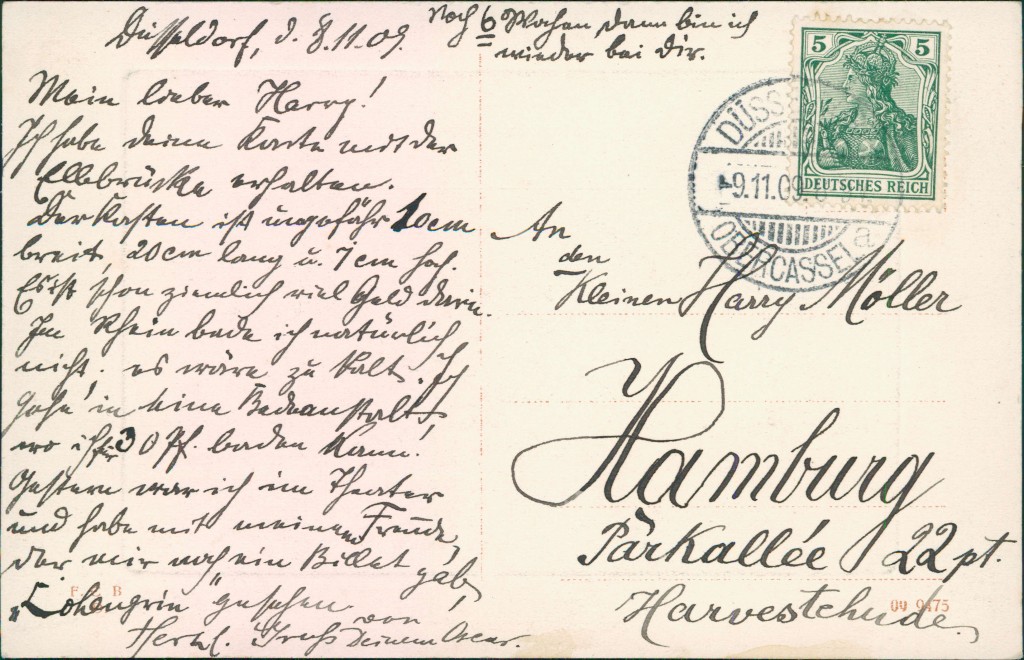 Düsseldorf, d. 8.11.09.
Noch 6 Wochen, dann bin ich
wieder bei Dir.
Mein lieber Harry!
Ich habe deine Karte mit der
Ellebrücke erhalten.
Der Kasten ist ungefähr 10cm
breit, 20cm lang u. 7cm hoch.
Es ist schon ziemlich viel Geld darin.
Im Rhein bade ich natürlich
nicht; es wäre zu kalt. Ich
gehe in eine Badeanstalt,
wo ich für 30 Pf. baden kann.
Gestern war ich im Theater
und habe mit meinem Freunde,
der mir noch ein Billet gab,
„Lohengrin" gesehen.
Herzl. Gruß von
Deinem Oscar.
An
den
Kleinen Harry Möller
Hamburg
Parkallée 22 pt.
Harvestehude.
5 5
DEUTSCHES REICH
DÜSS
9.11.09
OBERCASSEL
a
F. B
09 9475